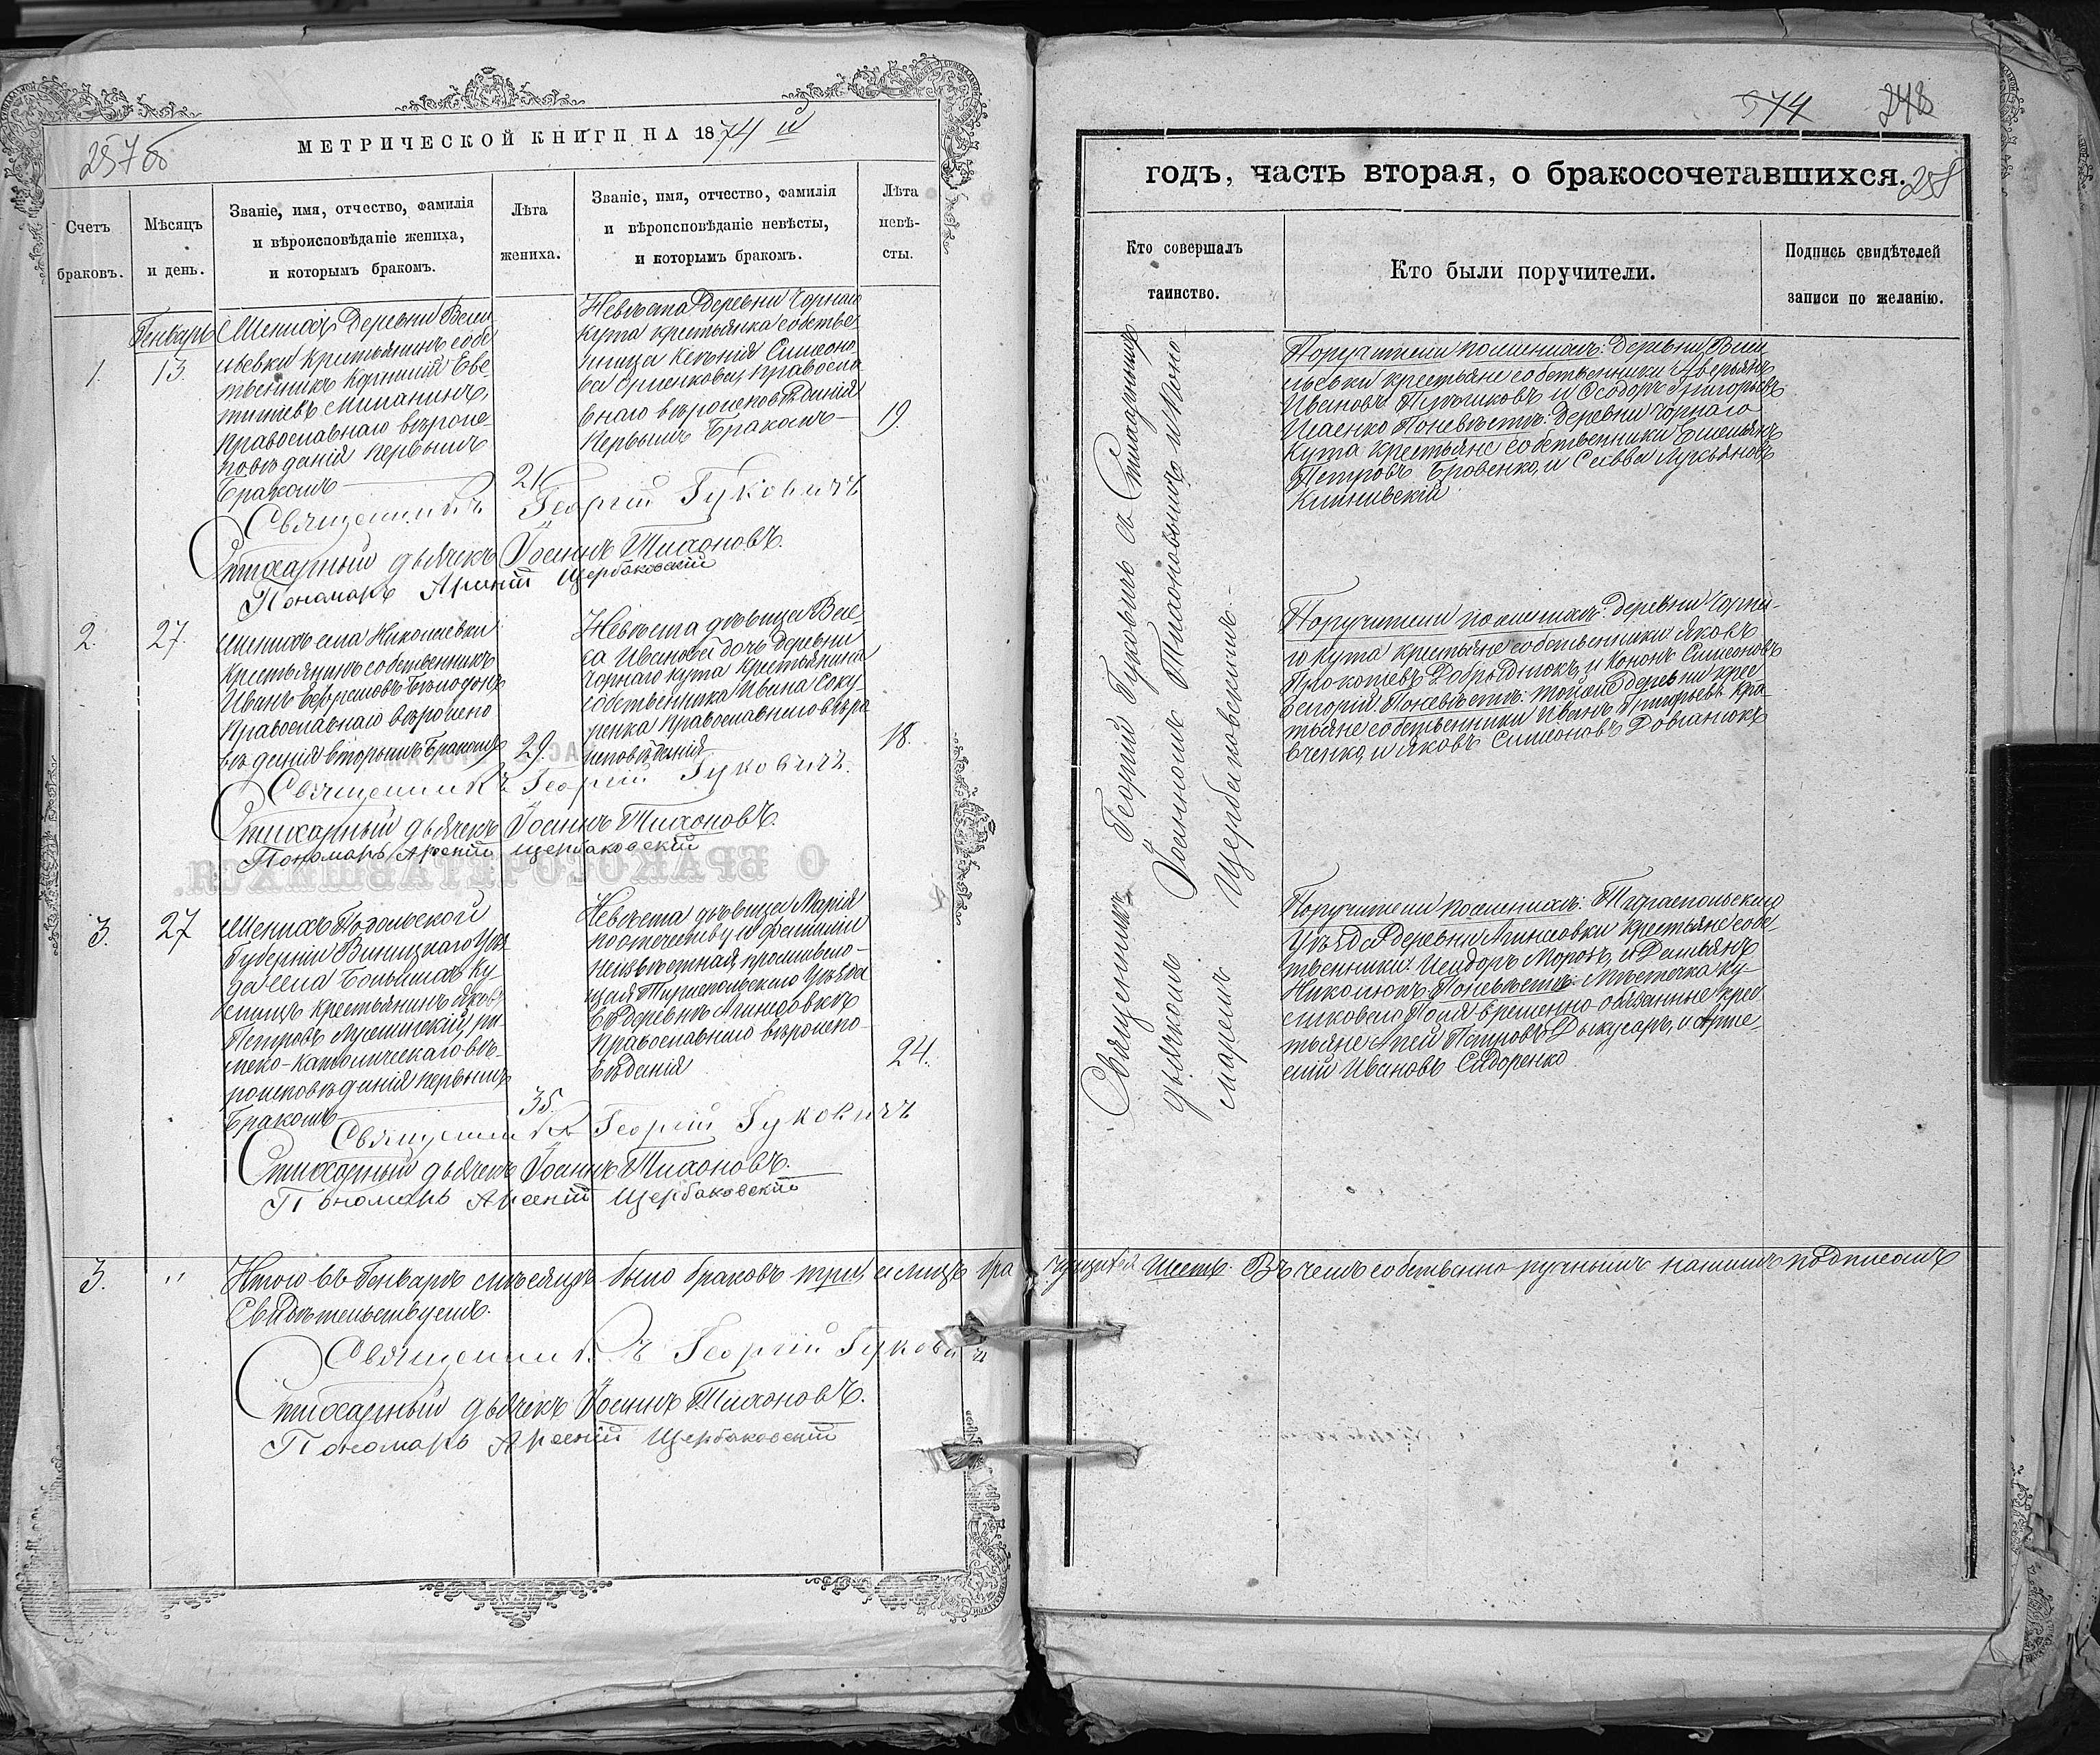 257 об
МЕТРИЧЕСКОЙ КНИГИ НА 1874 й
Счетъ
браковъ.
Мѣсяцъ
и день.
Званіе, имя, отчество, фамилія
и вѣроисповѣданіе жениха,
и которымъ бракомъ.
Лѣта
жениха.
Званіе, имя, отчество, фамилія
и вѣроисповѣданіе невѣсты,
и которымъ бракомъ.
Лѣта
невѣ-
сты.
1.
Генварь
13.
Женихъ Деревни Васи
льевки крестьянинъ собс
твенникъ
православнаго вѣроис
повѣданія первымъ
бракомъ
21
Невѣста Деревни Чорнаго
Кута крестьянка собстве
нница Ксенія Симеоно
ва православ
наго вѣроисповѣданія
первымъ бракомъ
19.
Священникъ Георгій Гуковичъ
Стихарный дьячекъ Іоаннъ Тихоновъ.
Пономарь Арсеній Щербаковскій
2.
27.
Женихъ села Николаевки
крестьянинъ собственникъ
Иванъ Ефремовъ
православнаго вѣроиспо
вѣданія вторымъ бракомъ
29.
Невѣста дѣвица Вас
са Иванова дочь Деревни
Чорнаго кута крестьянина
собственника Ивана Соку
ренка православнаго вѣро
исповѣданія
18.
Священникъ Георгій Гуковичъ.
Стихарный дьячекъ Іоаннъ Тихоновъ.
Пономарь Арсеній Щербаковскій
3.
27
Женихъ Подольской
Губерніи Винницкаго уѣз
да села Большихъ Ку
крестьянинъ Яковъ
Петровъ ри
мско-католическаго вѣ-
роисповѣданія первымъ
бракомъ
35.
Невѣста дѣвица Марія
по отечеству и фамиліи
неизвѣстная, проживаю-
щая Тираспольскаго уѣзда
въ деревнѣ Агинсовкѣ
православнаго вѣроиспо-
вѣданія
24.
Священникъ Георгій Гуковичъ
Стихарный дьячекъ Іоаннъ Тихоновъ.
Пономарь Арсеній Щербаковскій
3.
"
Итого въ Генварѣ мѣсяцѣ было браковъ три, а лицъ бра
Свидѣтельствуемъ.
Священникъ Георгій Гуковичъ
Стихарный дьячекъ Іоаннъ Тихоновъ.
Пономарь Арсеній Щербаковскій
574
248
258
годъ, часть вторая, о бракосочетавшихся.
Кто совершалъ
таинство.
Кто были поручители.
Подпись свидѣтелей
записи по желанію.
Священникъ Георгій Гуковичъ съ Стихарнымъ
дьячкомъ Іоанномъ Тихоновымъ и Поно
маремъ Щербаковскимъ.
Поручители по женихѣ: деревни Васи
льевки крестьяне собственники Аверьянъ
Ивановъ и Ѳеодоръ Григорьевъ
Исаенко По невѣстѣ: деревни Чорнаго
кута крестьяне собственники Емельянъ
Петровъ Бровенко, и Савва Лукьяновъ
Поручители по женихѣ: деревни Чорна-
го Кута крестьяне собственники Яковъ
Прокопіевъ и Кононъ Симеоновъ
По невѣстѣ: той же деревни крес
тьяне собственники Иванъ Кра
вченко, и Яковъ Симеоновъ Довганюкъ
Поручители по женихѣ: Тираспольскаго
уѣзда деревни Агинсовки крестьяне собс
твенники: Исидоръ Морозъ, и Демьянъ
По невѣстѣ: Мѣстечка
временно обязанные крес
тьяне Петровъ и Арте
мій Ивановъ Сидоренко
Шесть. Въ чемъ собственно ручнымъ нашимъ подписомъ